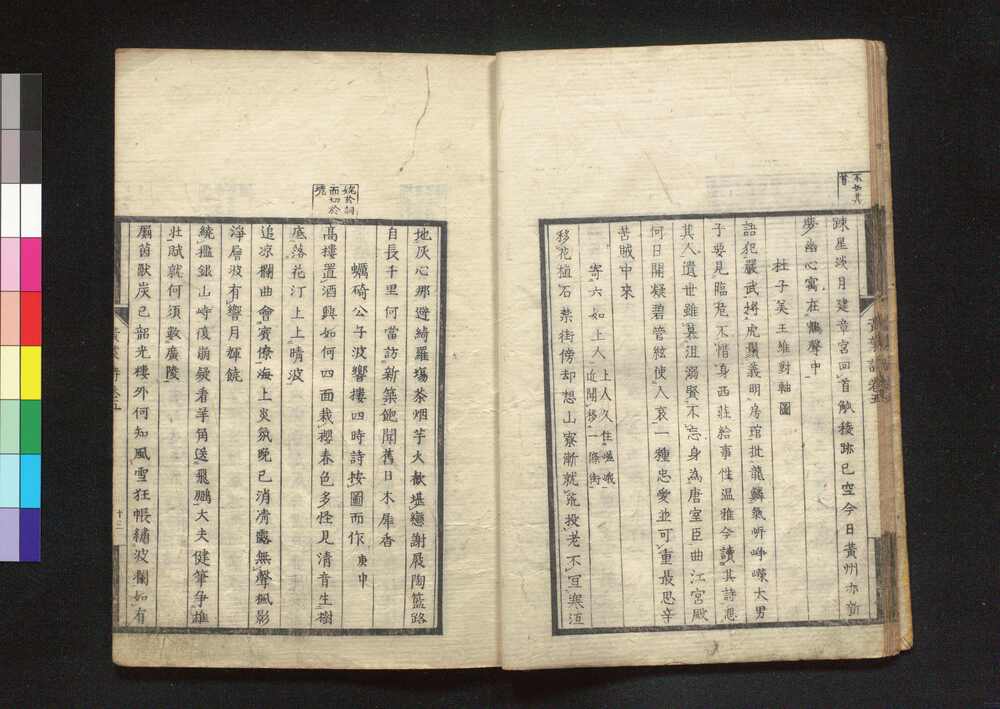 疎星淡月建章宮回首觚稜跡已空今日黄州亦新
夢幽心寓在鵲聲中
杜子美王維對軸圖
語犯嚴武捋虎鬚義明房琯批龍鱗氣听崢嶸大男
子要見臨危不惜身西莊給事性温雅今讀其詩思
其人遺世雖慕沮溺賢不忘身為唐室臣曲江宮殿
何日開凝碧管絃使人哀一種忠愛並可重最思辛
苦賊中來
寄六如上人
上人久住嵯峨
近聞移一條街
移花植石禁街傍却想山寮漸就荒投老不宜寒沍
地灰心那避綺羅場茶烟芋火歡堪戀謝屐陶籃路
自長千里何當訪新築飽聞舊日木犀香
蠣碕公子波響樓四時詩按圖而作庚申
高樓置酒興如何四面栽櫻春色多怪見清音生樹
底落花汀上上晴波
追凉欄曲會賓僚海上炎氛晚已消凊露無聲楓影
淨層波有響月輝饒
繞檻銀山峙復崩疑看羊角送飛鵬大夫健筆争雄
壯賦就何須數廣陵
廟茵獸炭已韶光樓外何知風雪狂帳繡波瀾如有
十二